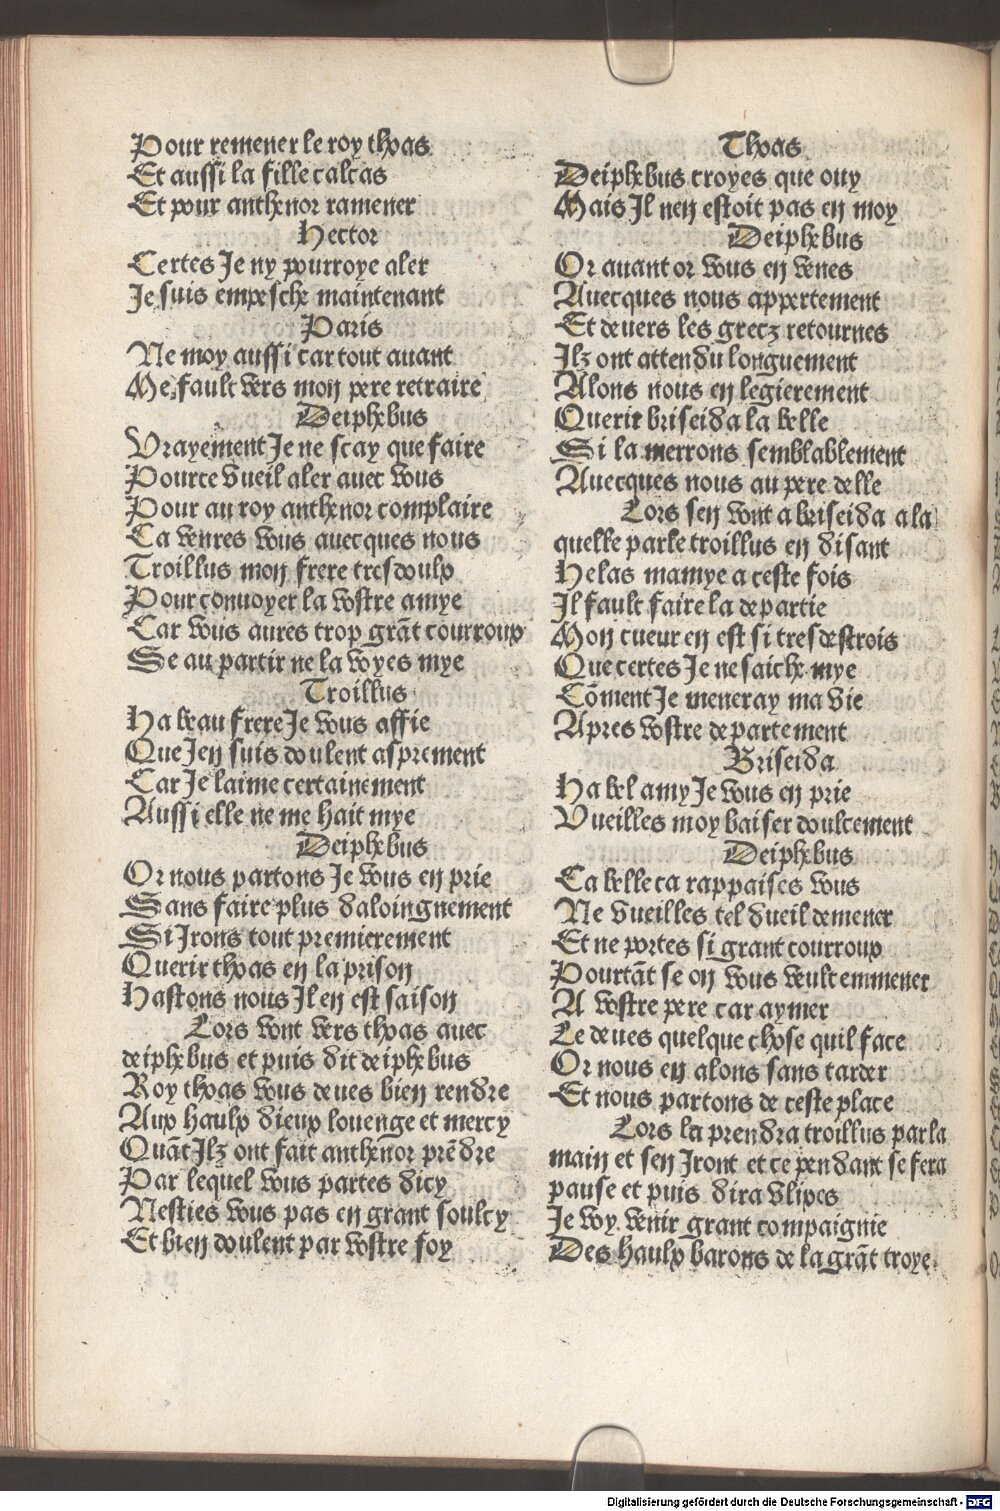 Pour remener le roy thoas
Et aussi la fille calcas
Et pour anthenor ramener
Hector
Certes Je ny pourroye aler
Je suis empesche maintenant
Paris
Ne moy aussi car tout auant
Me fault vers mon pere retraire
Deiphebus
Vrayement Je ne scay que faire
Pource vueil aler auec vous
Pour au roy anthenor complaire
Ca venres vous auecques nous
Troillus mon frere tresdoulx
Pour conuoyer la vostre amye
Car vous aures trop grãt courroux
Se au partir ne la voyes mye
Troillus
Ha beau frere Je vous affie
Que Jen suis doulent asprement
Car Je laime certainement
Aussi elle ne me hait mye
Deiphebus
Or nous partons Je vous en prie
Sans faire plus daloingnement
Si Jrons tout premierement
Querir thoas en la prison
Hastons nous Jl en est saison
Lors vont vers thoas auec
deiphebus et puis dit deiphebus
Roy thoas vous deues bien rendre
Aux haulx dieux louenge et mercy
Quãt Jlz ont fait anthenor prẽdre
Par lequel vous partes dicy
Nesties vous pas en grant soulcy
Et bien doulent par vostre foy
Thoas
Deiphebus croyes que ouy
Mais Jl nen estoit pas en moy
Deiphebus
Or auant or vous en venes
Auecques nous appertement
Et deuers les grecz retournes
Jlz ont attendu longuement
Alons nous en legierement
Querir briseida la belle
Si la merrons semblablement
Auecques nous au pere delle
Lors sen vont a briseida a la
quelle parle troillus en disant
Helas mamye a ceste fois
Jl fault faire la departie
Mon cueur en est si tresdestrois
Que certes Je ne saiche mye
Cõment Je meneray ma vie
Apres vostre departement
Briseida
Ha bel amy Je vous en prie
Vueilles moy baiser doulcement
Deiphebus
Ca belle ca rappaises vous
Ne vueilles tel dueil demener
Et ne portes si grant courroux
Pourtãt se on vous veult emmener
A vostre pere car aymer
Le deues quelque chose quil face
Or nous en alons sans tarder
Et nous partons de ceste place
Lors la prendra troillus par la
main et sen Jront et ce pendant se fera
pause et puis dira vlixes
Je voy venir grant compaignie
Des haulx barons de la grãt troye
Digitalisierung gefördert durch die Deutsche Forschungsgemeinschaft - DFG